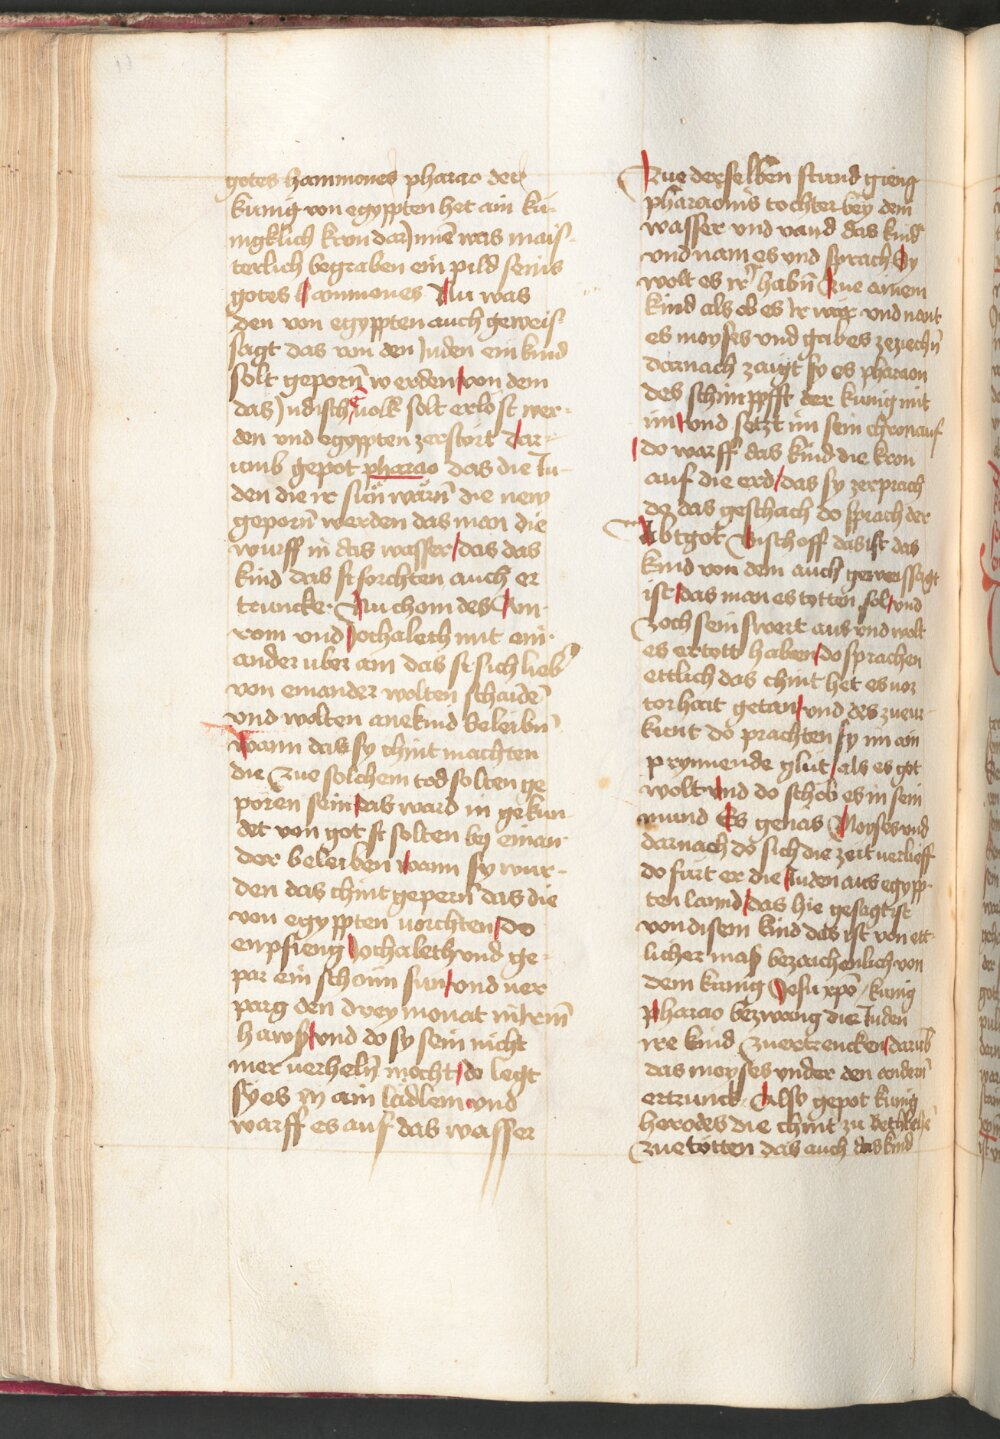 gotes hammones pharao der
kunig von egyppten het ain ku-
nigklich kron dar Jnnē was mais-
terlich begraben ein pild seins
gotes hammones Nu was
den von egyppten auch geweis-
sagt das von den Juden ein kind
solt geporn̄ werden / von dem
das Judisch volk solt erlost wer-
den vnd egyppten zerstört Dar-
umb gepot pharao das die Ju-
den die ir sün wärn̄ die new
geporn̄ werden das man die
wurff in das wasser / das das
kind das si forchten auch er
truncke. Nu chom des Am-
rom vnd Jochabeth mit ein-
ander uber ain das si sich lieb̄
von einander wolten schaidē
vnd wolten ane kind beleibn̄
wann das sy chint machten
die zue solchem tod solten ge
poren sein / das ward in gekun-
det von got si solten bey einan-
der beleiben wann sy wur-
den das chint gepern̄ das die
von egyppten vorchten / Do
enpfieng Jochabeth vnd ge-
par ein schönn sun / vnd ver
parg den drey monat in irem̄
haws / vnd do sy sein nicht
mer verheln̄ mocht / do legt
sy es in ain lädlem vnd
warff es auf das wasser
Zue derselben stund gieng
pharaonis tochter bey dem
wasser vnd vand das kind
vnd nam es vnd sprach Sy
wolt es ir habn̄ Zue ainem
kind als ob es Ir wär vnd nant
es moyses vnd gab es zeziechn̄
darnach zaigt sy es pharaon
des schimppfft der kunig mit
im / vnd setzt im sein chron auf
do warff das kind die kron
auf die erd / das sy zerprach
do das geschach do sprach der
Abtgot Bischoff das ist das
kind von dem auch geweissagt
ist / das man es totten sol / vnd
zoch sein swert aus vnd wolt
es ertott haben / do sprachen
ettlich das chint het es vor
torhait getan / vnd des zueur-
kunt do prachten sy im ain
prynnende glut / als es got
wolt vnd do schob es in sein
mund Es genas Moyses vnd
darnach do sich die zeit verlieff
do furt er die Juden aus egypp-
ten lannd / das hie gesagt ist
von disem kind das ist von ett-
licher mas bezaichenlich von
dem kunig Jesu xpō / kunig
Pharao bezwang die Juden
ire kind zuertrencken / darūb
das moyses vnder den andern̄
ertrunck. Also gepot kunig
herodes die chint zu Bethlehē
zue tötten das auch das kind